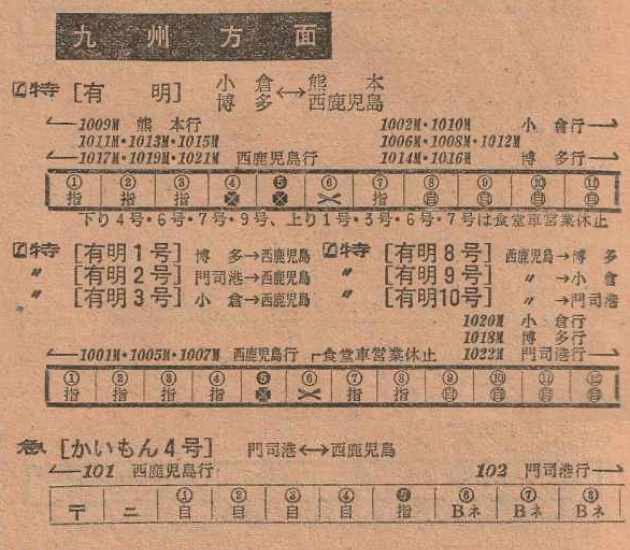 九州方面
特 [有 明] 小倉 ←→ 熊本
博多 西鹿児島
←1009M 熊本行 1002M・1010M 小倉行→
1011M・1013M・1015M 1006M・1008M・1012M
←1017M・1019M・1021M 西鹿児島行 1014M・1016M 博多行→
① ② ③ ④ ❺ ⑥ ⑦ ⑧ ⑨ ⑩ ⑪
指 指 指 指 自 自 自 自
下り4号・6号・7号・9号、上り1号・3号・6号・7号は食堂車営業休止
特 [有明1号] 博多→西鹿児島 特 [有明8号] 西鹿児島→博多
〃 [有明2号] 門司港→西鹿児島 〃 [有明9号] 〃 →小倉
〃 [有明3号] 小倉→西鹿児島 〃 [有明10号] 〃 →門司港
1020M 小倉行
1018M 博多行
←1001M・1005M・1007M 西鹿児島行 食堂車営業休止 1022M 門司港行→
① ② ③ ④ ❺ ⑥ ⑦ ⑧ ⑨ ⑩ ⑪ ⑫
指 指 指 指 指 指 自 自 自 自
急 [かいもん4号] 門司港←→西鹿児島
←101 西鹿児島行 102 門司港行→
① ② ③ ④ ❺ ⑥ ⑦ ⑧
〒 ニ 自 自 自 自 指 Bネ Bネ Bネ